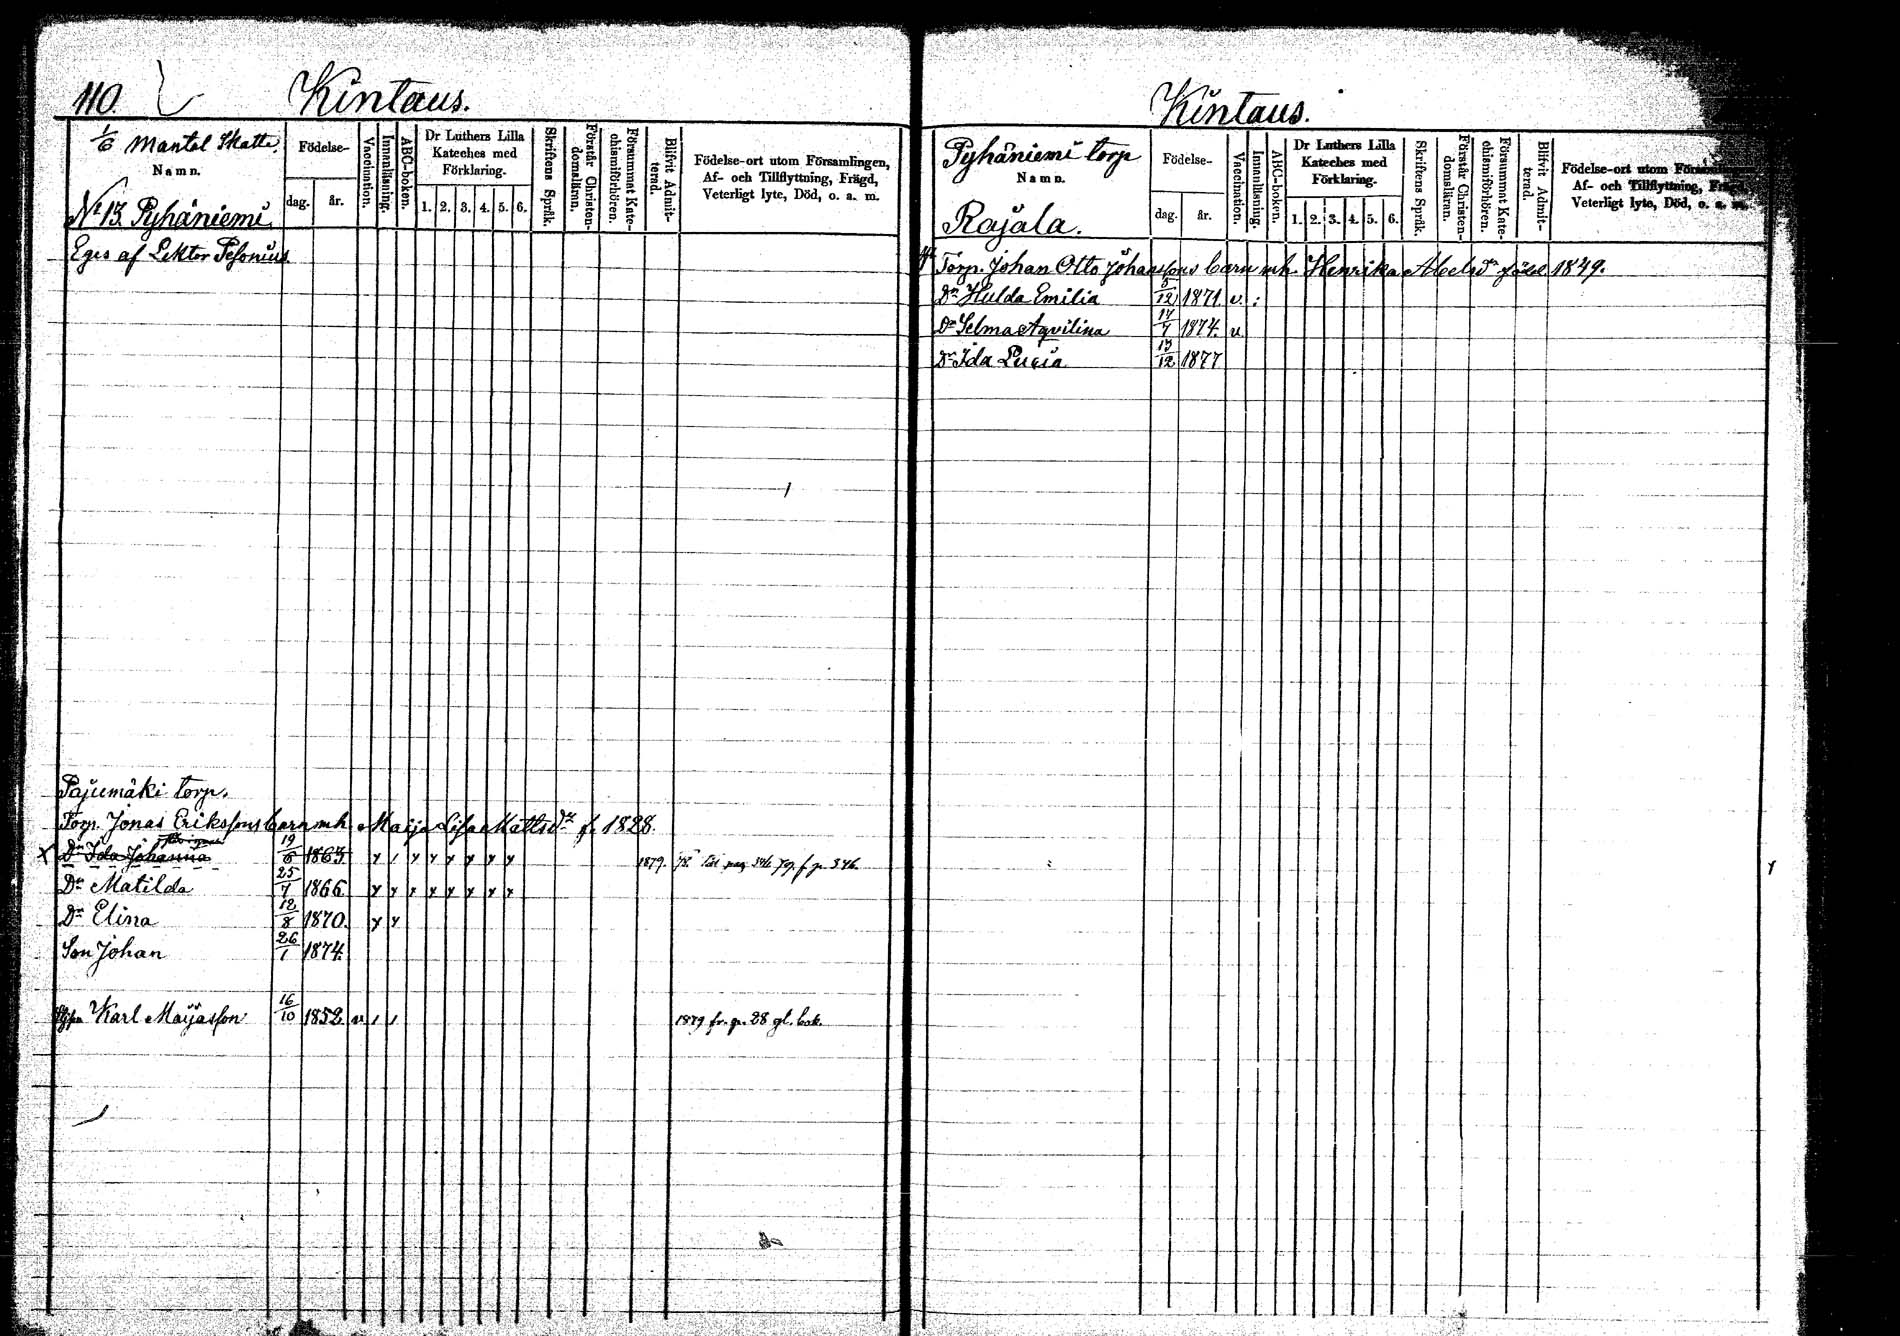 110.
Kintaus.
1/6 Mantal Skatte.
Namn.
No 13. Pyhäniemi
Födelse-
dag.
år.
Vaccination.
Innanläsning.
ABC-boken.
Dr Luthers Lilla
Kateches med
Förklaring.
1. 2. 3. 4. 5. 6.
Skriftens Språk.
Förstår Christen-
domsläran.
Försummat Kate-
chismiförhören.
Blifvit Admit-
terad.
Födelse-ort utom Församlingen,
Af- och Tillflyttning, Frägd,
Veterligt lyte, Död, o. a. m.
Eges af Lektor Pesonius.
Pajumäki torp.
Torp. Jonas Erikssons barn mh. Maija Lisa Mattsdr f. 1828.
Dr Ida Johanna 19/6 1863 1879.
Dr Matilda 25/7 1866
Dr Elina 12/8 1870.
Son Johan 26/1 1874.
Karl Maijasson 16/10 1852 v 1879 fr. p. 28 gl. bok.
Kintaus.
Pyhäniemi torp
Namn.
Rajala.
Födelse-
dag.
år.
Vaccination.
Innanläsning.
ABC-boken.
Dr Luthers Lilla
Kateches med
Förklaring.
1. 2. 3. 4. 5. 6.
Skriftens Språk.
Förstår Christen-
domsläran.
Försummat Kate-
chismiförhören.
Blifvit Admit-
terad.
Födelse-ort utom
Af- och Tillflyttning, Frägd,
Veterligt lyte, Död, o. a. m.
Torp. Johan Otto Johanssons barn mh. Henrika Abelsdr född 1849.
Dr Hulda Emilia 5/12 1871. v.
Dr Selma Aqvilina 17/7 1874. v
Dr Ida Lucia 13/12 1877